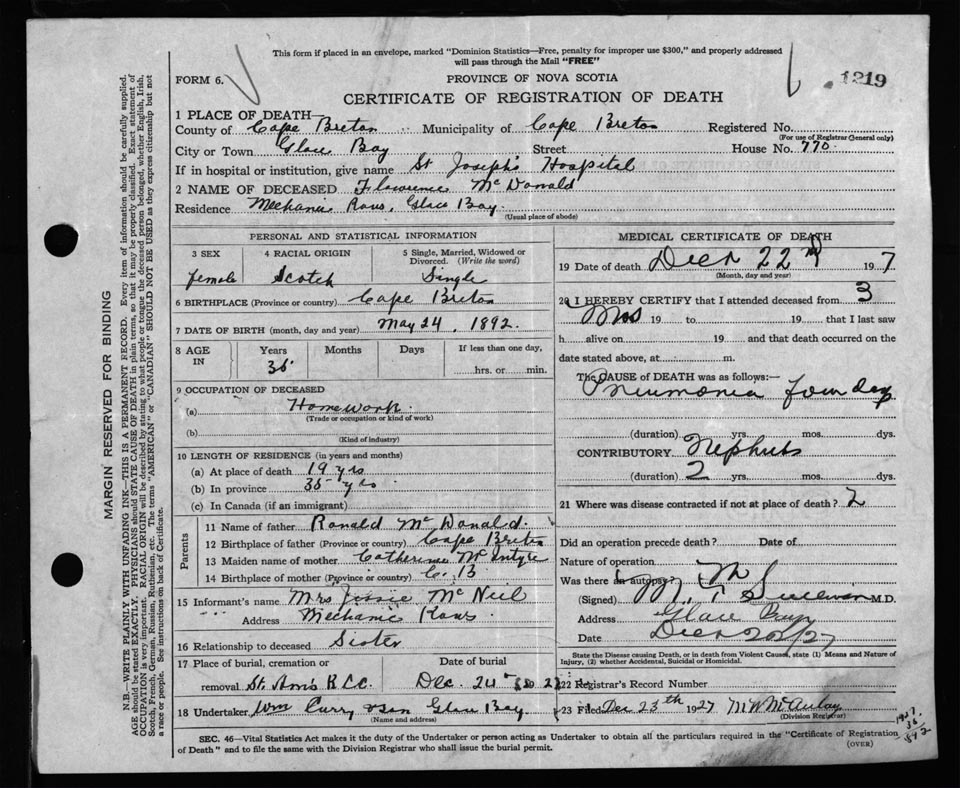 This form if placed in an envelope, marked "Dominion Statistics—Free, penalty for improper use $300," and properly addressed
will pass through the Mail "FREE"
FORM 6.
PROVINCE OF NOVA SCOTIA
1219
CERTIFICATE OF REGISTRATION OF DEATH
1 PLACE OF DEATH
County of Cape Breton Municipality of Cape Breton Registered No.
(For use of Registrar General only)
City or Town Glace Bay Street House No. 770
If in hospital or institution, give name St Joseph's Hospital
2 NAME OF DECEASED Flawrence McDonald
Residence Mechanic Rows, Glace Bay
(Usual place of abode)
PERSONAL AND STATISTICAL INFORMATION
3 SEX 4 RACIAL ORIGIN 5 Single, Married, Widowed or Divorced. (Write the word)
female Scotch Single
6 BIRTHPLACE (Province or country) Cape Breton
7 DATE OF BIRTH (month, day and year) May 24, 1892.
8 AGE IN Years Months Days If less than one day,
35 hrs. or min.
9 OCCUPATION OF DECEASED
(a) Homework
(Trade or occupation or kind of work)
(b)
(Kind of industry)
10 LENGTH OF RESIDENCE (in years and months)
(a) At place of death 19 yrs
(b) In province 35 yrs
(c) In Canada (if an immigrant)
Parents
11 Name of father Ronald McDonald.
12 Birthplace of father (Province or country) Cape Breton
13 Maiden name of mother Catherine McIntyre
14 Birthplace of mother (Province or country) C. B
15 Informant's name Mrs Jessie McNeil
" " Address Mechanic Rows
16 Relationship to deceased Sister
17 Place of burial, cremation or Date of burial
removal St. Ann's R.C.C. Dec. 24th
18 Undertaker Wm Curry & Son Glace Bay
(Name and address)
MEDICAL CERTIFICATE OF DEATH
19 Date of death Decr 22nd 197
(Month, day and year)
20 I HEREBY CERTIFY that I attended deceased from 3
19 to 19 that I last saw
h alive on 19 and that death occurred on the
date stated above, at m.
The CAUSE OF DEATH was as follows:—
Pneumonia four days
(duration) yrs. mos. dys.
CONTRIBUTORY Nephritis
(duration) 2 yrs. mos. dys.
21 Where was disease contracted if not at place of death? 2
Did an operation precede death? Date of
Nature of operation
Was there an autopsy?
(Signed) M. T. Sullivan M.D.
Address Glace Bay
Date Decr 22/27
State the Disease causing Death, or in death from Violent Causes, state (1) Means and Nature of
Injury, (2) whether Accidental, Suicidal or Homicidal.
22 Registrar's Record Number
23 Filed Dec 23th 1927 M W McAulay
(Division Registrar)
1927
35
1892
SEC. 46—Vital Statistics Act makes it the duty of the Undertaker or person acting as Undertaker to obtain all the particulars required in the "Certificate of Registration
of Death" and to file the same with the Division Registrar who shall issue the burial permit.
(OVER)
MARGIN RESERVED FOR BINDING
N.B.—WRITE PLAINLY WITH UNFADING INK—THIS IS A PERMANENT RECORD. Every item of information should be carefully supplied.
AGE should be stated EXACTLY. PHYSICIANS should STATE CAUSE OF DEATH in plain terms, so that it may be properly classified. Exact statement of
OCCUPATION is very important. RACIAL ORIGIN will be described by stating to what people or tongue the deceased person belonged, whether English, Irish,
Scotch, French, German, Russian, Ruthenian, etc. The terms "AMERICAN" or "CANADIAN" SHOULD NOT BE USED as they express citizenship but not
a race or people. See instructions on back of Certificate.